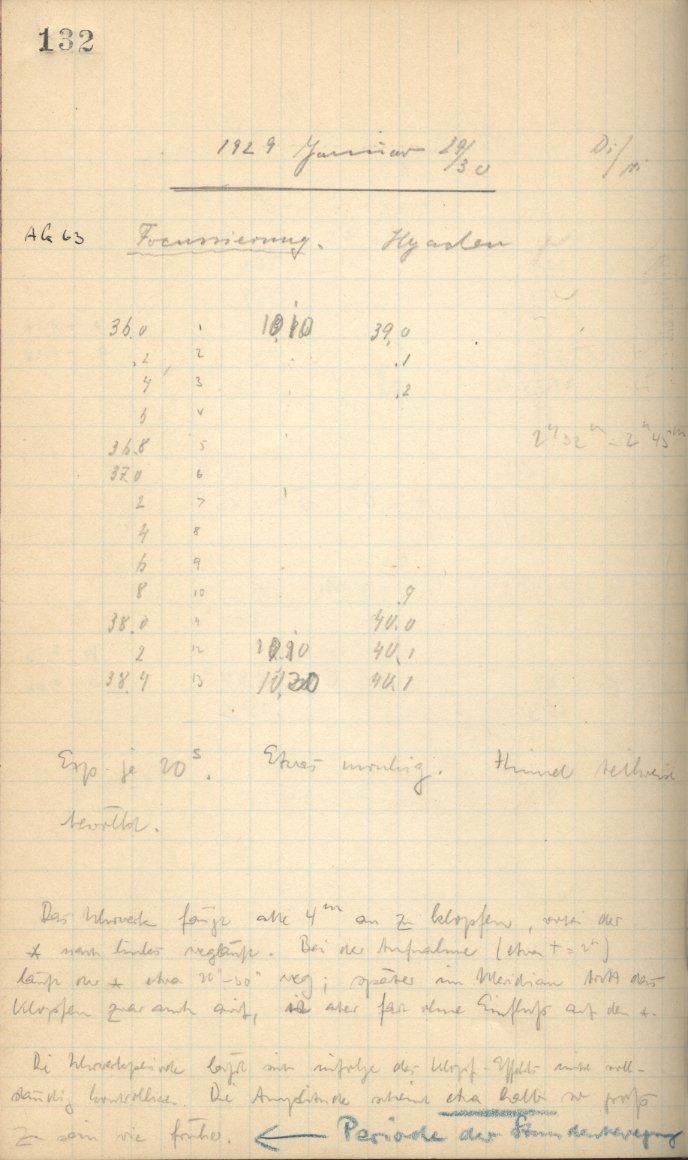 132
1929 Januar 29/30 Di/Mi
AG 63 Focussierung. Hyaden
36.0 1 39.0
.2 2 .1
4 3 .2
6 4
36.8 5 2h32m - 2h45m
37.0 6
2 7
4 8
6 9
8 10 .9
38.0 11 40.0
2 12 40.1
38.4 13 40.1
Exp. je 20s. Etwas mondig. Himmel teilweise
bewölkt.
Das Uhrwerk fängt alle 4m an zu klopfen, wobei der
* nach links wegläuft. Bei der Aufnahme (etwa t = 2h)
läuft der * etwa 20"-30" weg; später im Meridian tritt das
Klopfen zwar auch auf, ist aber fast ohne Einfluß auf den *.
Die Uhrwerkperiode läßt sich infolge des Klopf-Effekts nicht voll-
ständig kontrollieren. Die Amplitude scheint etwa halb so groß
zu sein wie früher. ← Periode der Stundenbewegung